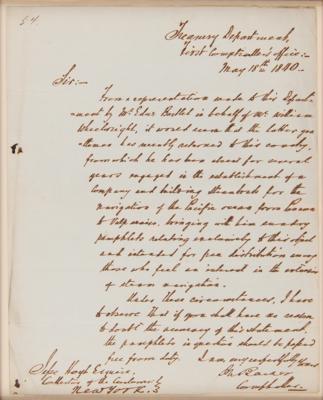 54.
Treasury Department,
First Comptroller's Office:-
May 18th 1840.-
Sir:-
From a representation made to this Depart-
ment by Mr. in behalf of Mr. William
Wheelwright, it would seem that the latter gen-
tleman has recently returned to this country,
from which he has been absent for several
years engaged in the establishment of a
company and building steamboats for the
navigation of the Pacific ocean from Panama
to Valparaiso, bringing with him sundry
pamphlets relating exclusively to this object
and intended for free distribution among
those who feel an interest in the extension
of steam navigation.
Under these circumstances, I have
to observe that if you shall have no reason
to doubt the accuracy of this statement,
the pamphlets in question should be passed
free from duty. I am, very respectfully yours
Barker
Comptroller.
Hoyt Esquire,
Collector of the Customs
New York.